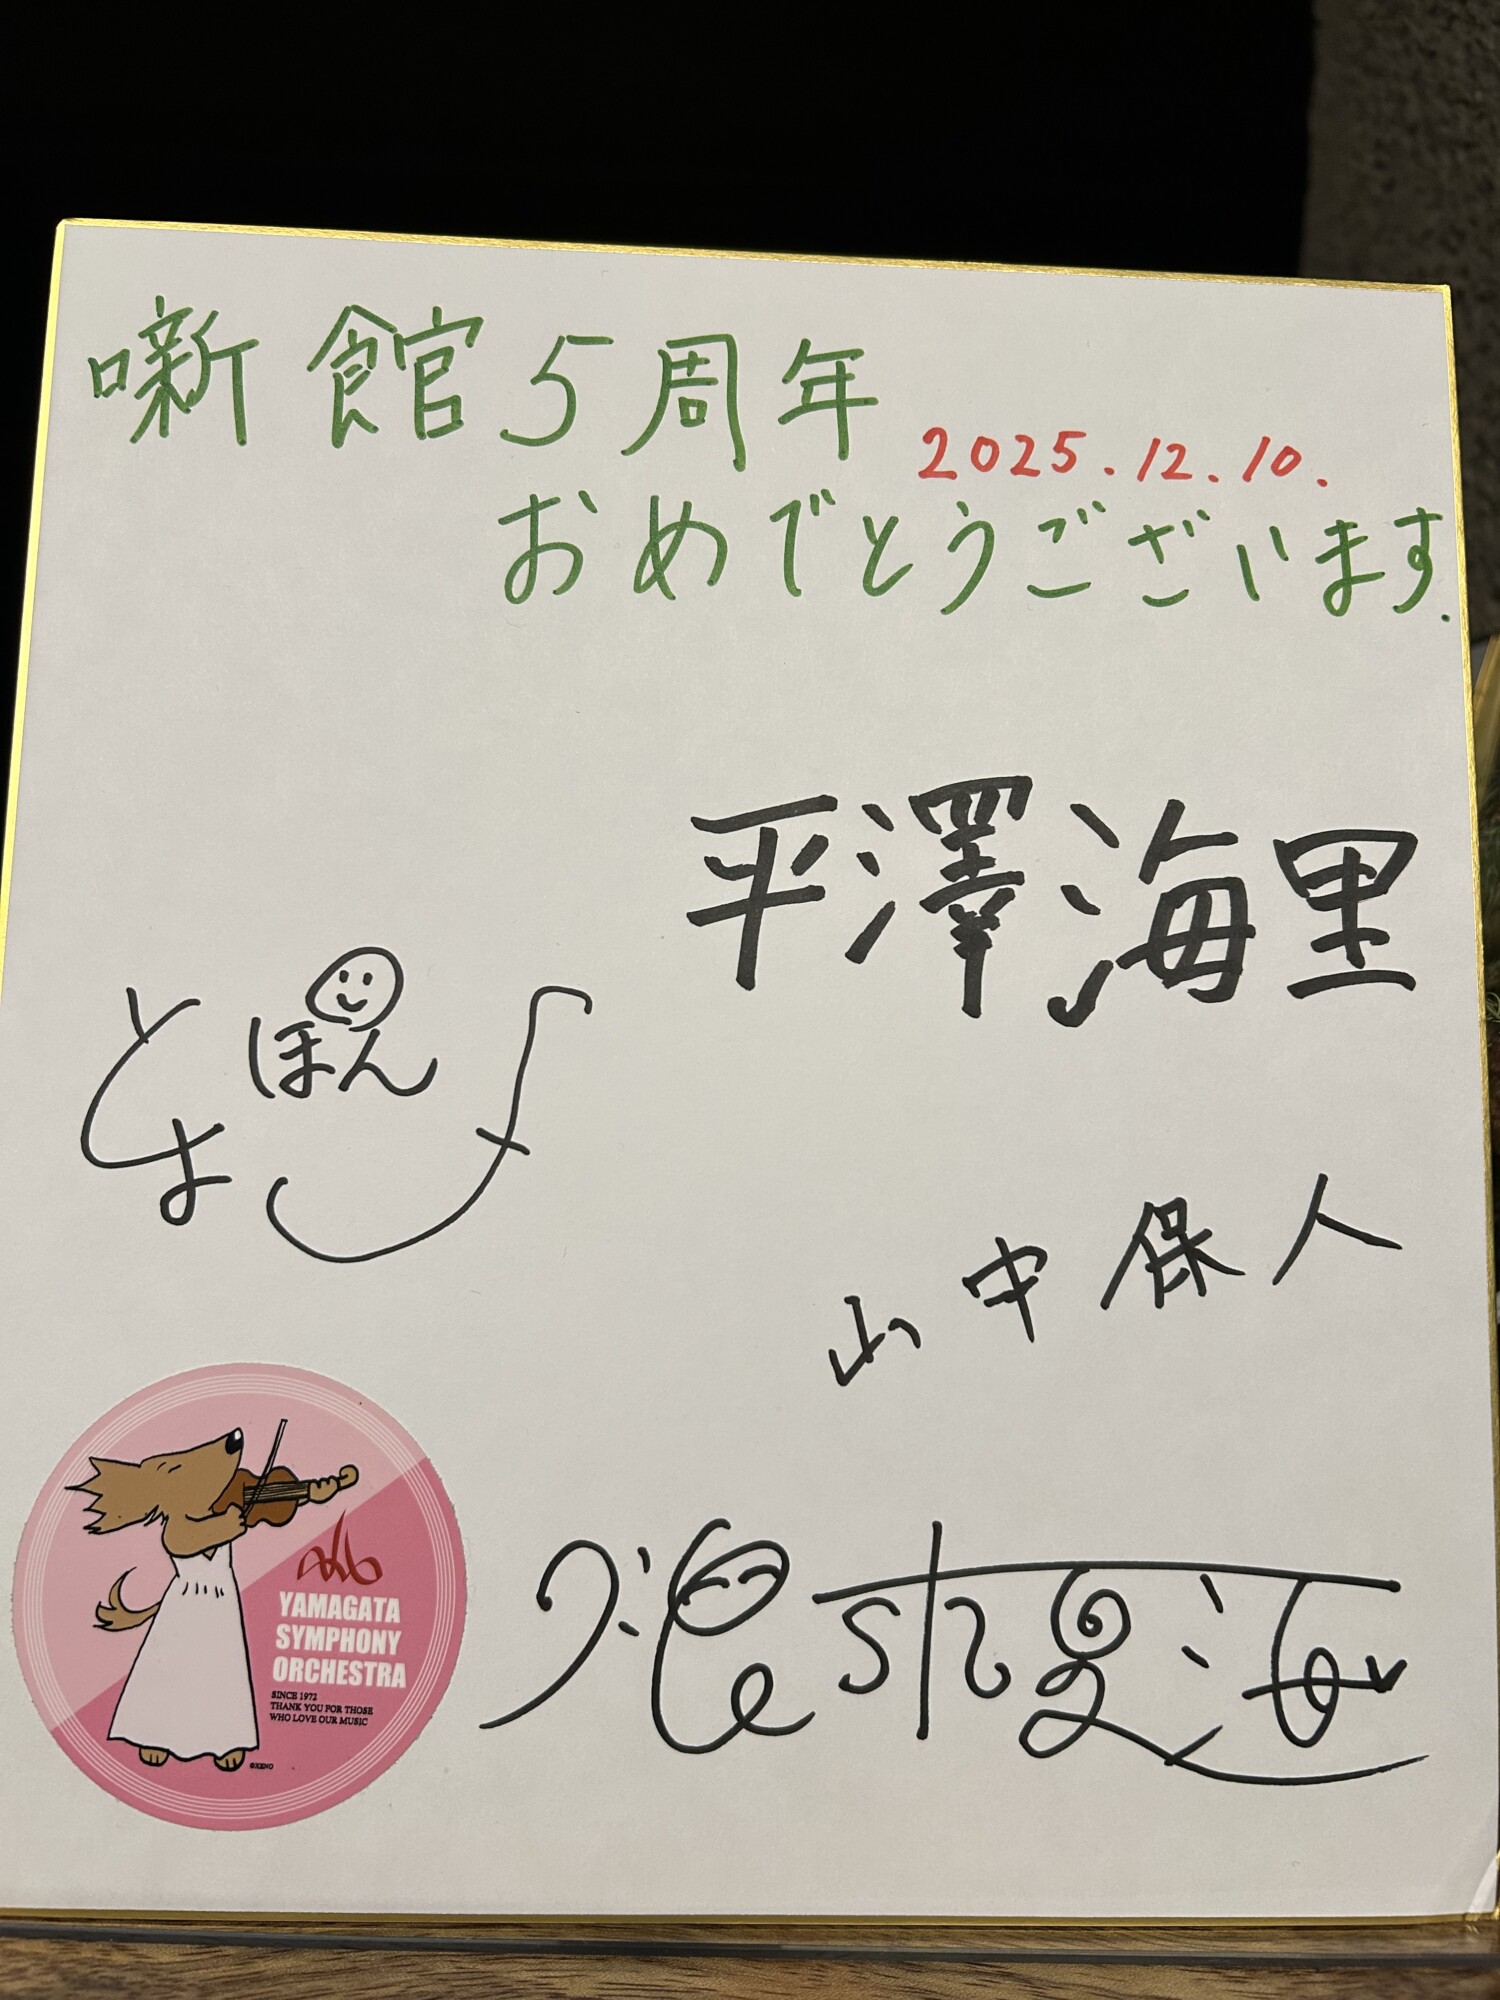 噺館5周年
2025.12.10.
おめでとうございます.
平澤海里
とよ
ほん
山中保人
YAMAGATA
SYMPHONY
ORCHESTRA
SINCE 1972
THANK YOU FOR THOSE
WHO LOVE OUR MUSIC
©XENO